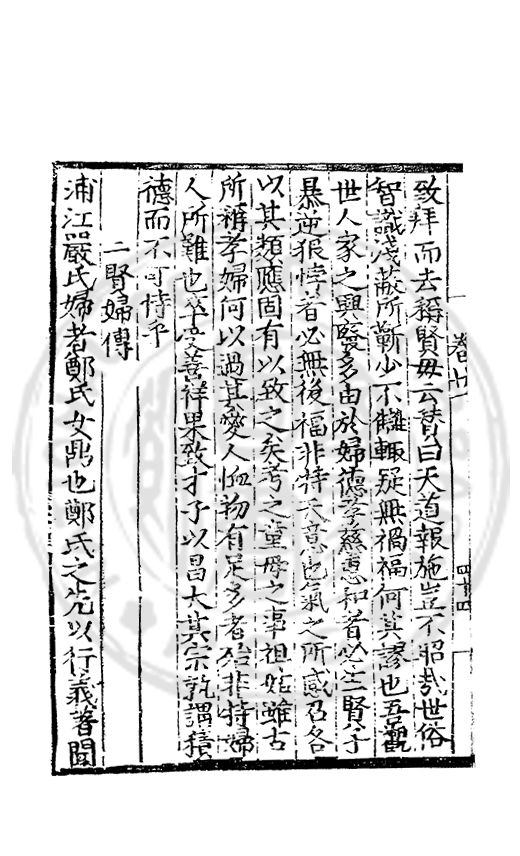 卷廿一
四十四
致拜而去稱賢母云贊曰天道報施豈不昭哉世俗
智識淺蔽所蘄少不讎輒疑無禍福何其謬也吾觀
世人家之興廢多由於婦德孝慈惠和者必生賢子
暴逆狠悖者必無後福非特天意也氣之所感召各
以其類應固有以致之矣考之童母之事祖姑雖古
所稱孝婦何以過其愛人恤物有足多者殆非特婦
人所難也卒受善祥果致才子以昌大其宗孰謂積
德而不可恃乎
二賢婦傳
浦江嚴氏婦者鄭氏女也鄭氏之先以行義著聞